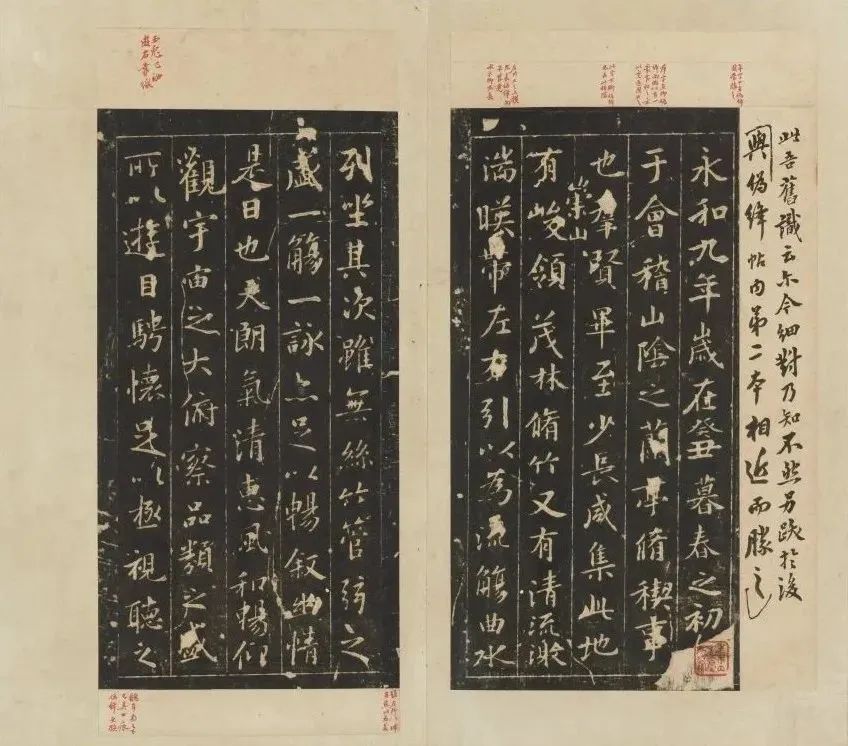 此吾舊識云尒今細對乃知不然另跋於後
與偽絳帖内第二本相近而勝之
永和九年歲在癸丑暮春之初
于會稽山陰之蘭亭脩稧事
也羣賢畢至少長咸集此地
有崇山峻領茂林脩竹又有清流激
湍暎帶左右引以為流觴曲水
列坐其次雖無絲竹管弦之
盛一觴一詠亦足以暢叙幽情
是日也天朗氣清惠風和暢仰
觀宇宙之大俯察品類之盛
所以遊目騁懷足以極視聽之